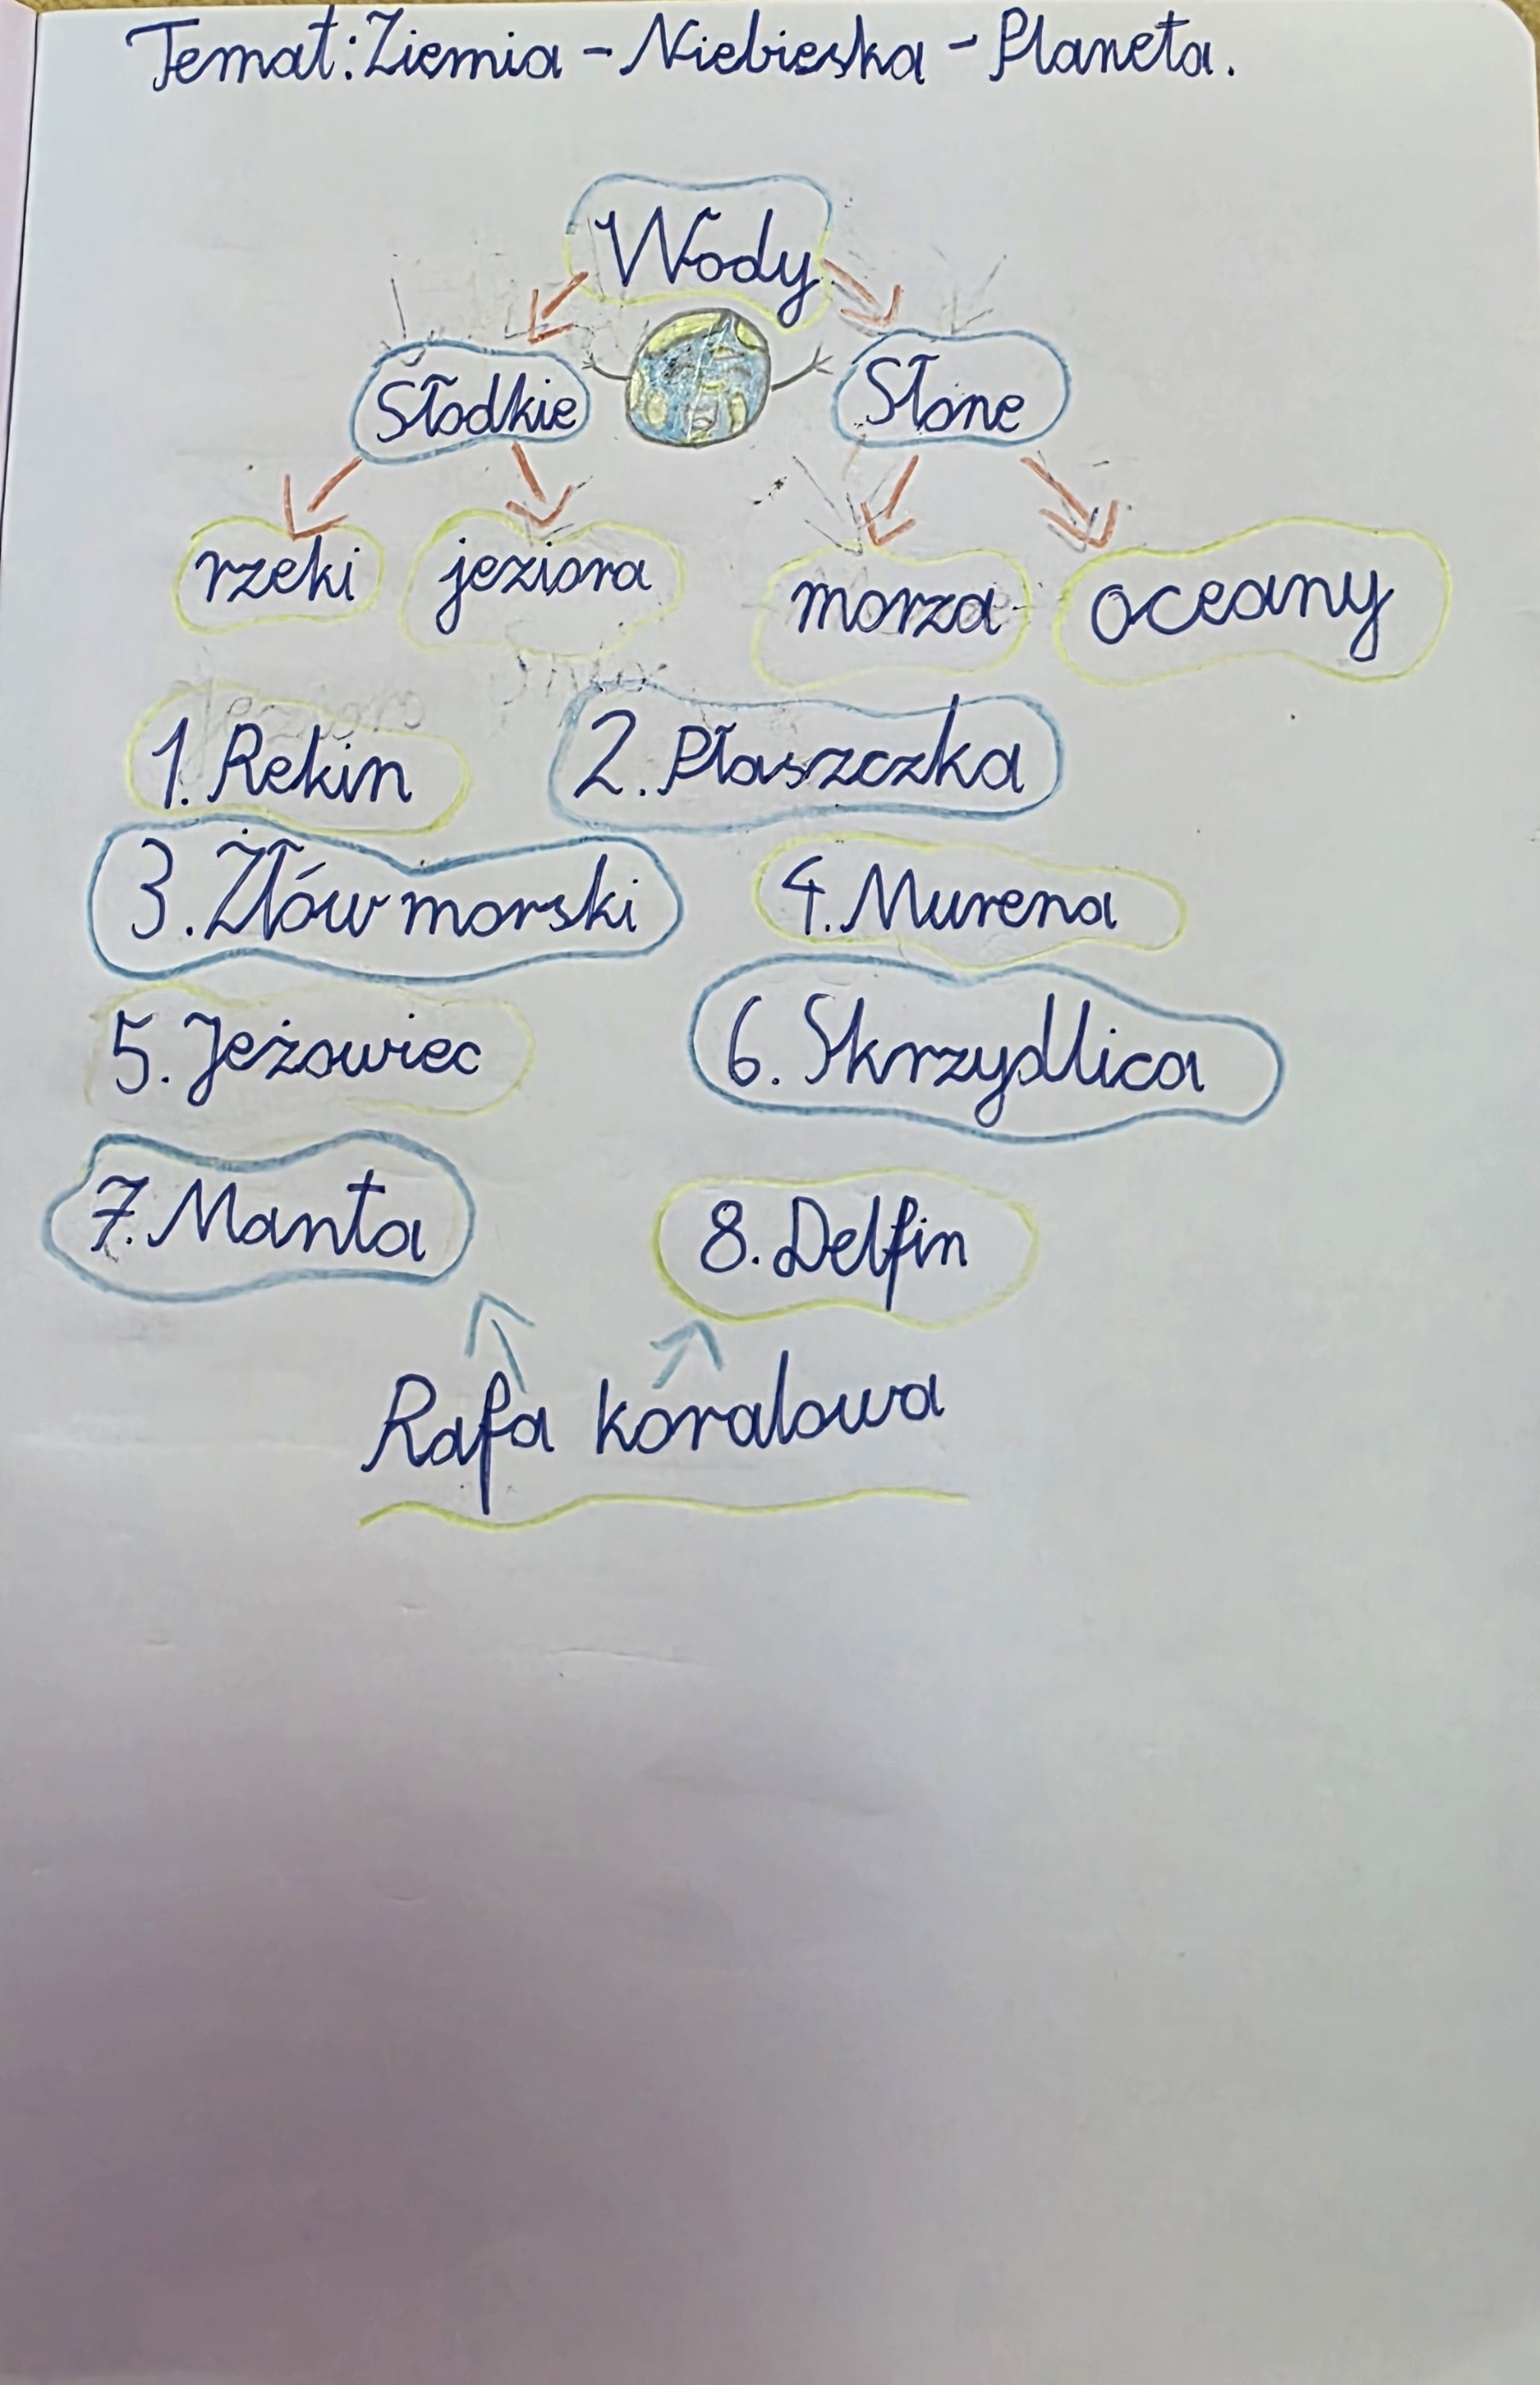 Temat: Ziemia - Niebieska - Planeta.
Wody
Słodkie Słone
rzeki jeziora morza oceany
1. Rekin 2. Płaszczka
3. Żłów morski 4. Murena
5. Jeżowiec 6. Skrzydlica
7. Manta 8. Delfin
Rafa koralowa